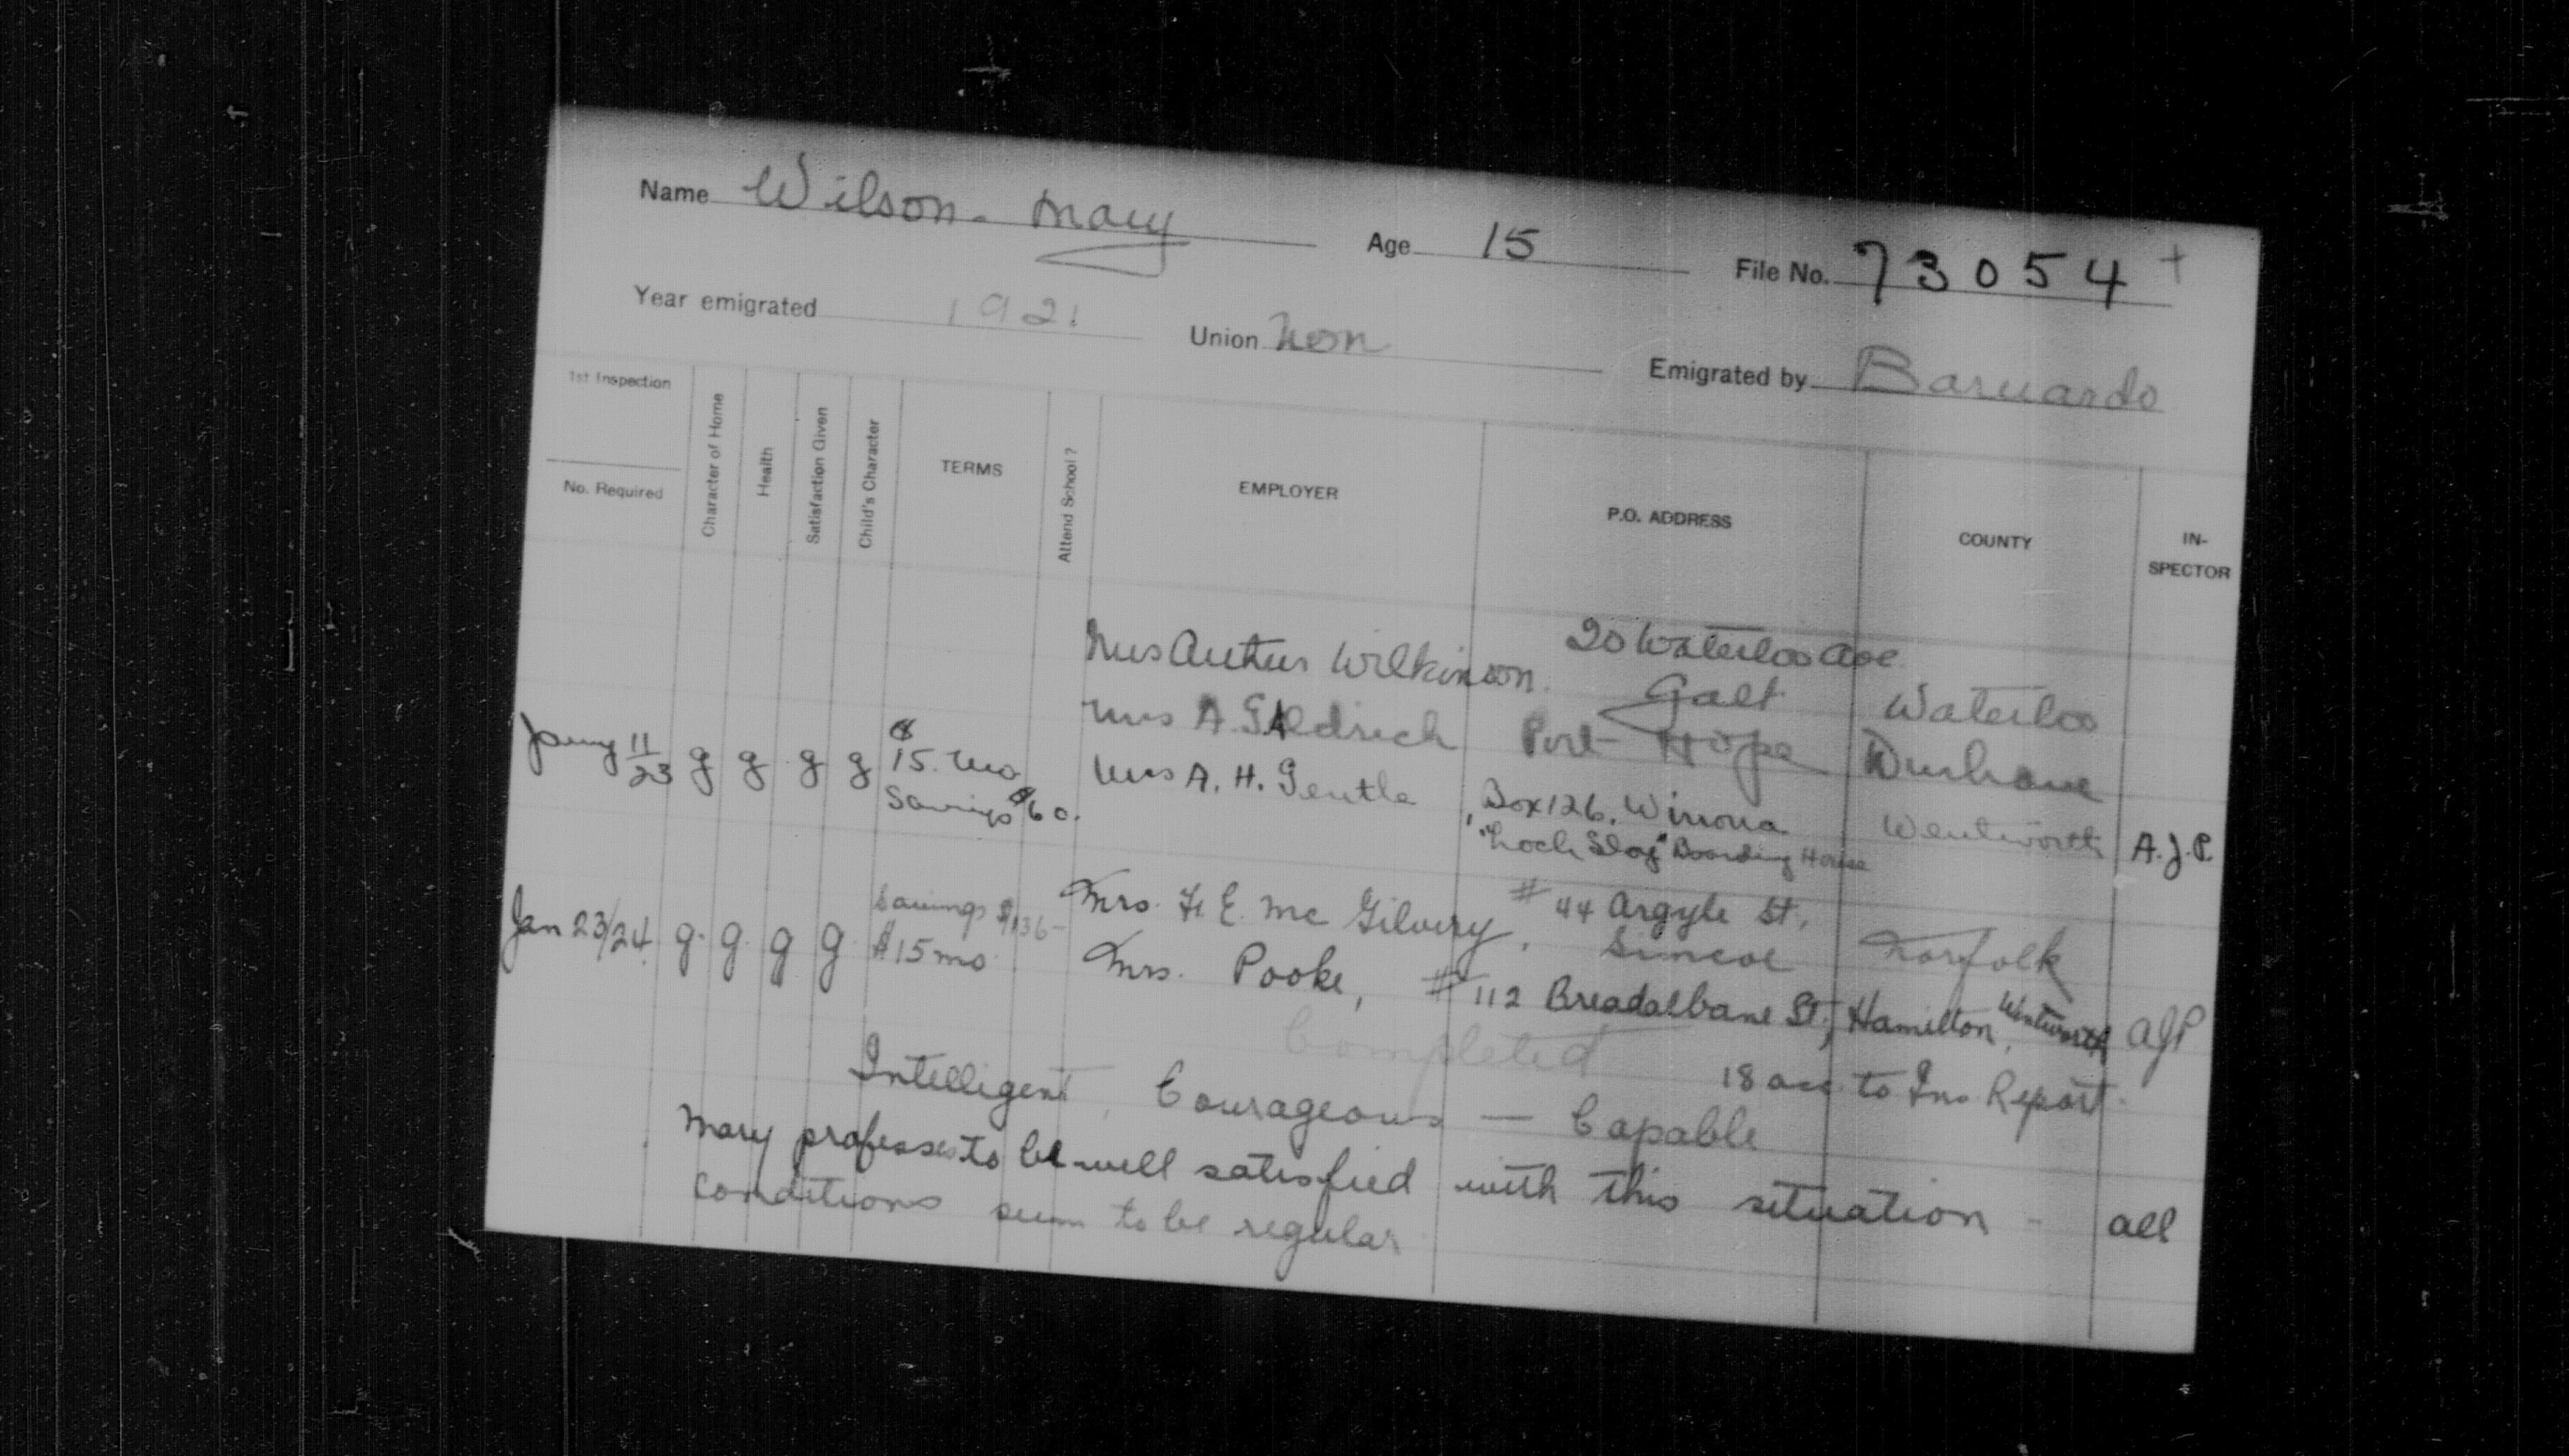 Name Wilson - Mary Age 15 File No. 73054 +
Year emigrated 1921 Union non Emigrated by Barnardo
1st Inspection
No. Required
Character of Home
Health
Satisfaction Given
Child's Character
TERMS
Attend School?
EMPLOYER
P.O. ADDRESS
COUNTY
IN-
SPECTOR
Mrs Arthur Wilkinson. 20 Waterloo Ave
Galt Waterloo
Mrs A. Port Hope Durham
Jany 11/23 g g g g $15. mo Mrs A. H. Gentle, Box 126, Winona Wentworth A.J.P.
Savings $60. "Loch Boarding House
Savings $136- Mrs. F. E. McGilvery, #44 Argyle St,
Simcoe Norfolk
Jan 23/24 g. g. g g. $15 mo. Mrs. Pooke, #112 Breadalbane St, Hamilton, Wentworth AJP
Completed
18 acc. to Ins. Report.
Intelligent, Courageous — Capable
Mary professes to be well satisfied with this situation - all
conditions seem to be regular